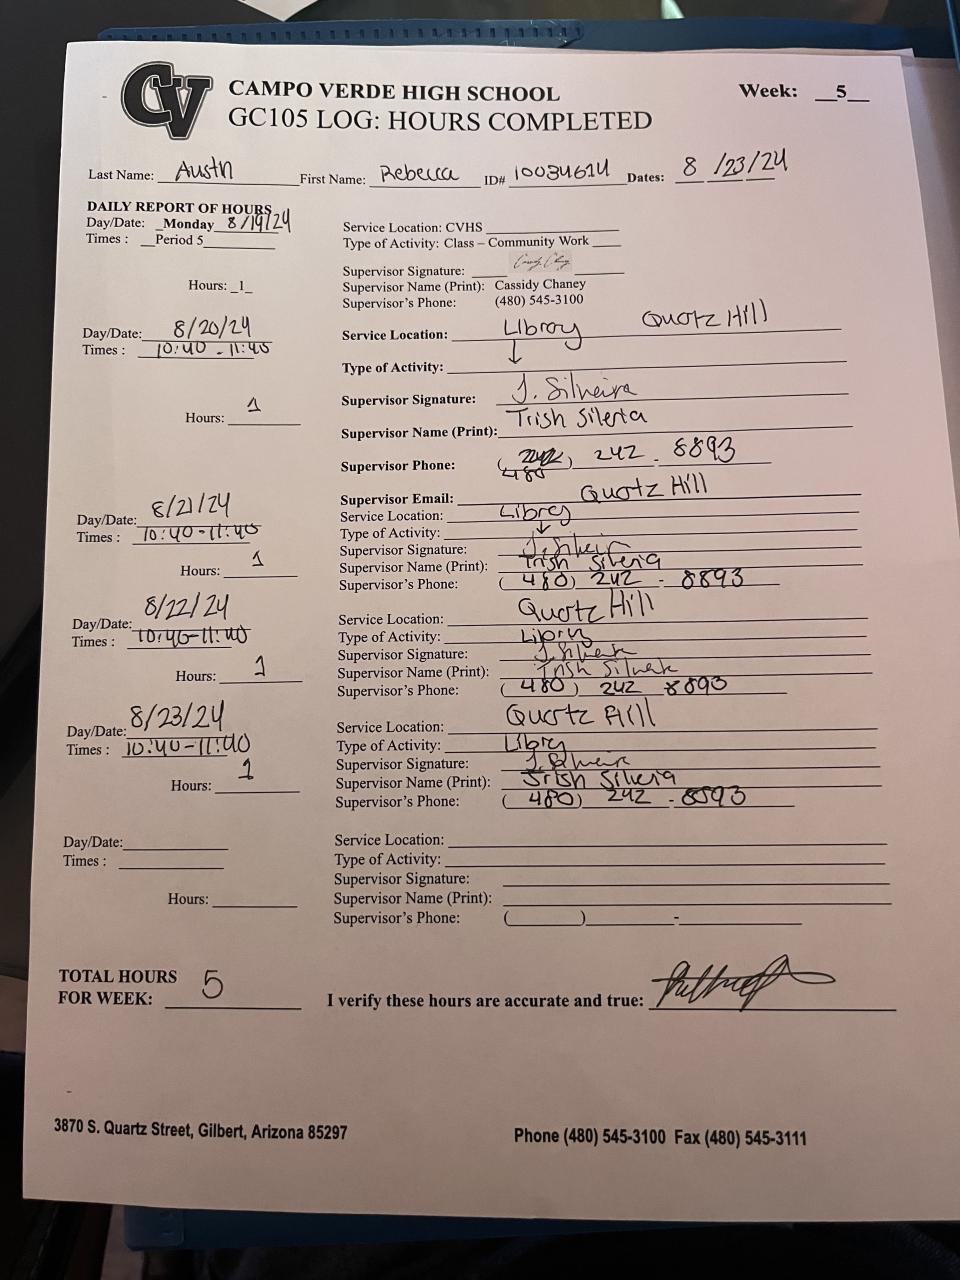 CV
CAMPO VERDE HIGH SCHOOL
Week: __5__
GC105 LOG: HOURS COMPLETED
Last Name: Austin First Name: Rebecca ID# 10034614 Dates: 8 /23/24
DAILY REPORT OF HOURS
Day/Date: _Monday_ 8/19/24
Times : __Period 5
Service Location: CVHS
Type of Activity: Class – Community Work
Supervisor Signature:
Hours: _1_
Supervisor Name (Print): Cassidy Chaney
Supervisor's Phone: (480) 545-3100
Day/Date: 8/20/24
Times : 10:40 - 11:40
Service Location: Libray Quartz Hill
Type of Activity: ↓
Supervisor Signature: J. Silveira
Hours: 1
Supervisor Name (Print): Trish Sileria
Supervisor Phone: (480) 242 - 8893
Supervisor Email: Quartz Hill
Day/Date: 8/21/24
Times : 10:40-11:40
Service Location: Librey
Type of Activity: ↓
Supervisor Signature:
Hours: 1
Supervisor Name (Print): Trish Silveria
Supervisor's Phone: (480) 242 - 8893
Day/Date: 8/22/24
Times : 10:40-11:40
Service Location: Quartz Hill
Type of Activity: Libry
Supervisor Signature:
Hours: 1
Supervisor Name (Print): Trish
Supervisor's Phone: (480) 242 8893
Day/Date: 8/23/24
Times : 10:40-11:40
Service Location: Quartz Hill
Type of Activity: Libry
Supervisor Signature:
Hours: 1
Supervisor Name (Print): Trish Silveria
Supervisor's Phone: (480) 242 - 8893
Day/Date:
Times :
Service Location:
Type of Activity:
Supervisor Signature:
Hours:
Supervisor Name (Print):
Supervisor's Phone: ( ) -
TOTAL HOURS
FOR WEEK: 5
I verify these hours are accurate and true:
3870 S. Quartz Street, Gilbert, Arizona 85297
Phone (480) 545-3100 Fax (480) 545-3111